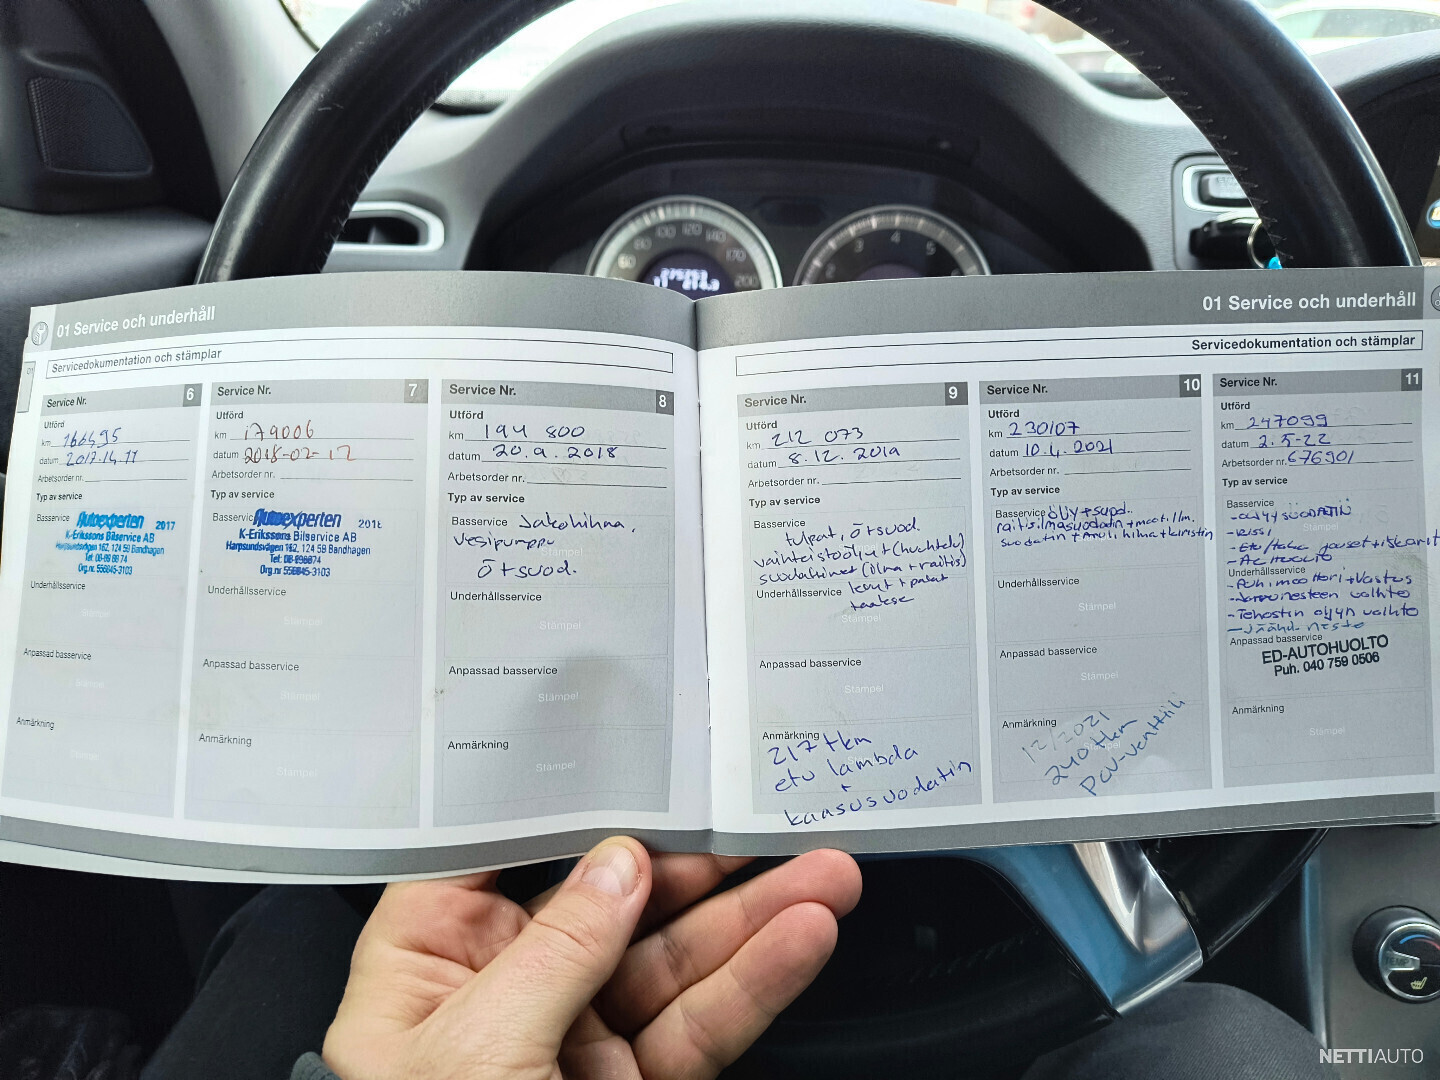 80 100 120 140 170 200
3 4 5
2
01 Service och underhåll
Servicedokumentation och stämplar
Service Nr. 6
Utförd
km 166495
datum
Arbetsorder nr.
Typ av service
Basservice Autoexperten 2017
K-Erikssons Bilservice AB
Harpsundsvägen 162, 124 59 Bandhagen
Underhållsservice
Stämpel
Anpassad basservice
Stämpel
Anmärkning
Service Nr. 7
Utförd
km 179006
datum 2018-02-12
Arbetsorder nr.
Typ av service
Basservice Autoexperten 2018
K-Erikssons Bilservice AB
Harpsundsvägen 162, 124 59 Bandhagen
Org.nr 556845-3103
Underhållsservice
Stämpel
Anpassad basservice
Stämpel
Anmärkning
Stämpel
Service Nr. 8
Utförd
km 194 800
datum 20.9.2018
Arbetsorder nr.
Typ av service
Basservice Jakohihna,
vesipumppu
Stämpel
ö+suod.
Underhållsservice
Stämpel
Anpassad basservice
Stämpel
Anmärkning
Stämpel
01 Service och underhåll
Servicedokumentation och stämplar
Service Nr. 9
Utförd
km 212 073
datum 8.12.2019
Arbetsorder nr.
Typ av service
Basservice
tulpat, ö+suod.
vaihteistoöljyt (huuhtelu)
suodattimet (ilma + raitis)
Underhållsservice levyt + palat
taakse
Stämpel
Anpassad basservice
Stämpel
Anmärkning
217 tkm
etu lambda
+
kaasusuodatin
Service Nr. 10
Utförd
km 230107
datum 10.4.2021
Arbetsorder nr.
Typ av service
Basservice öljy + suod.
raitisilmasuodatin + moot.ilm.
suodatin + muli.hihna + kiristin
Underhållsservice
Stämpel
Anpassad basservice
Stämpel
Anmärkning
12/2021
240 tkm
PCV-venttiili
Service Nr. 11
Utförd
km 247099
datum 2.5-22
Arbetsorder nr. 676901
Typ av service
Basservice
- Öljysuodatin
- Etu/taka jouset + iskarit
- AC Huolto
Underhållsservice
- Puh.moottori + vastus
- Jarrunesteen vaihto
- Tehostin öljyn vaihto
- Jäähd. neste
Anpassad basservice
ED-AUTOHUOLTO
Puh. 040 759 0506
Anmärkning
Stämpel
TEMP
NETTIAUTO